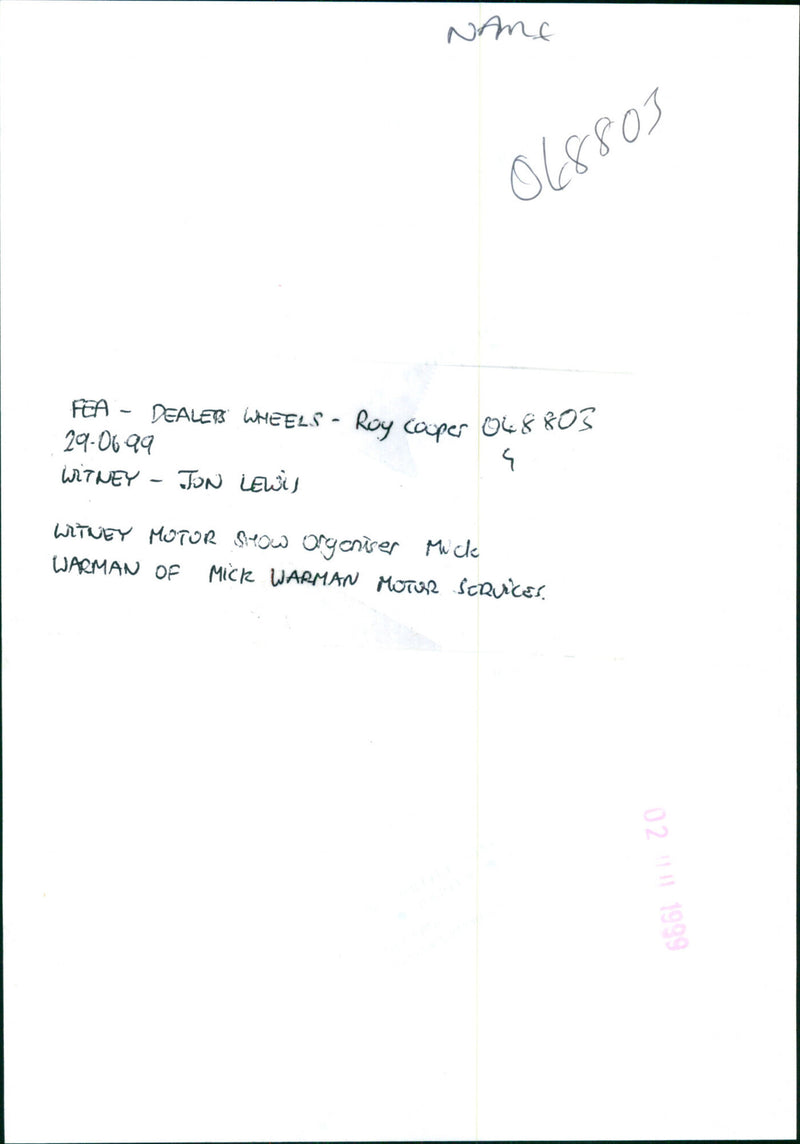 NAME
048803
FEA - DEALERS WHEELS - Roy Cooper 048803
29.06.99
WITNEY - JON LEWIS
WITNEY MOTOR SHOW Organiser Mick
WARMAN OF MICK WARMAN MOTOR SERVICES.
02 1999